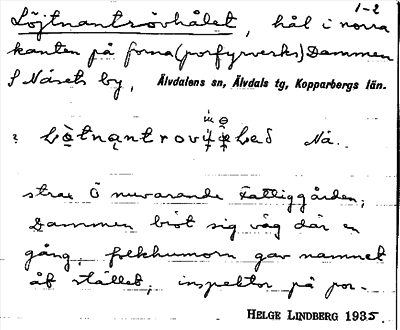 1-2
Löjtnantrövhålet, hål i norra
kanten på forna (porfyrverks) Dammen
S Näsets by, Älvdalens sn, Älvdals tg, Kopparbergs län.
Nä.
strax Ö nuvarande Fattiggården,
Dammen bröt sig väg där en
gång, folkhumorn gav namnet
åt stället, inspektor på por-
HELGE LINDBERG 1935.